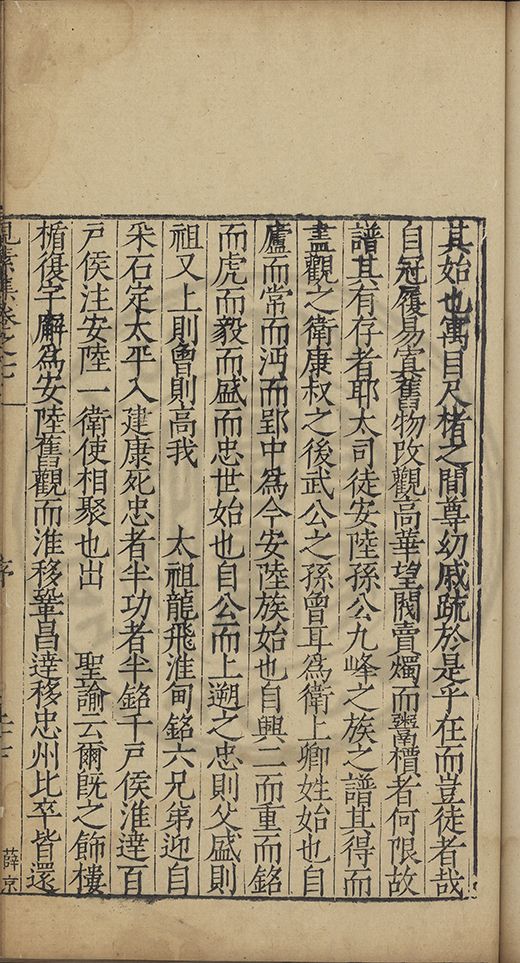 其始也寓目尺楮之間尊幼戚疏於是乎在而豈徒者哉
自冠履易寘舊物改觀高華望閥賣燭而鬻櫝者何限故
譜其有存者耶太司徒安陸孫公九峰之族之譜其得而
盡觀之衛康叔之後武公之孫曾耳為衛上卿姓始也自
廬而常而沔而郢中為今安陸族始也自興二而重而銘
而虎而毅而盛而忠世始也自公而上遡之忠則父盛則
祖又上則曾則高我 太祖龍飛淮甸銘六兄弟迎自
采石定太平入建康死忠者半功者半銘千戸侯淮達百
戸侯注安陸一衛使相聚也出 聖諭云爾既之飾樓
楯復字廨為安陸舊觀而淮移鞏昌達移忠州比卒皆還
集卷之七
序
薛京